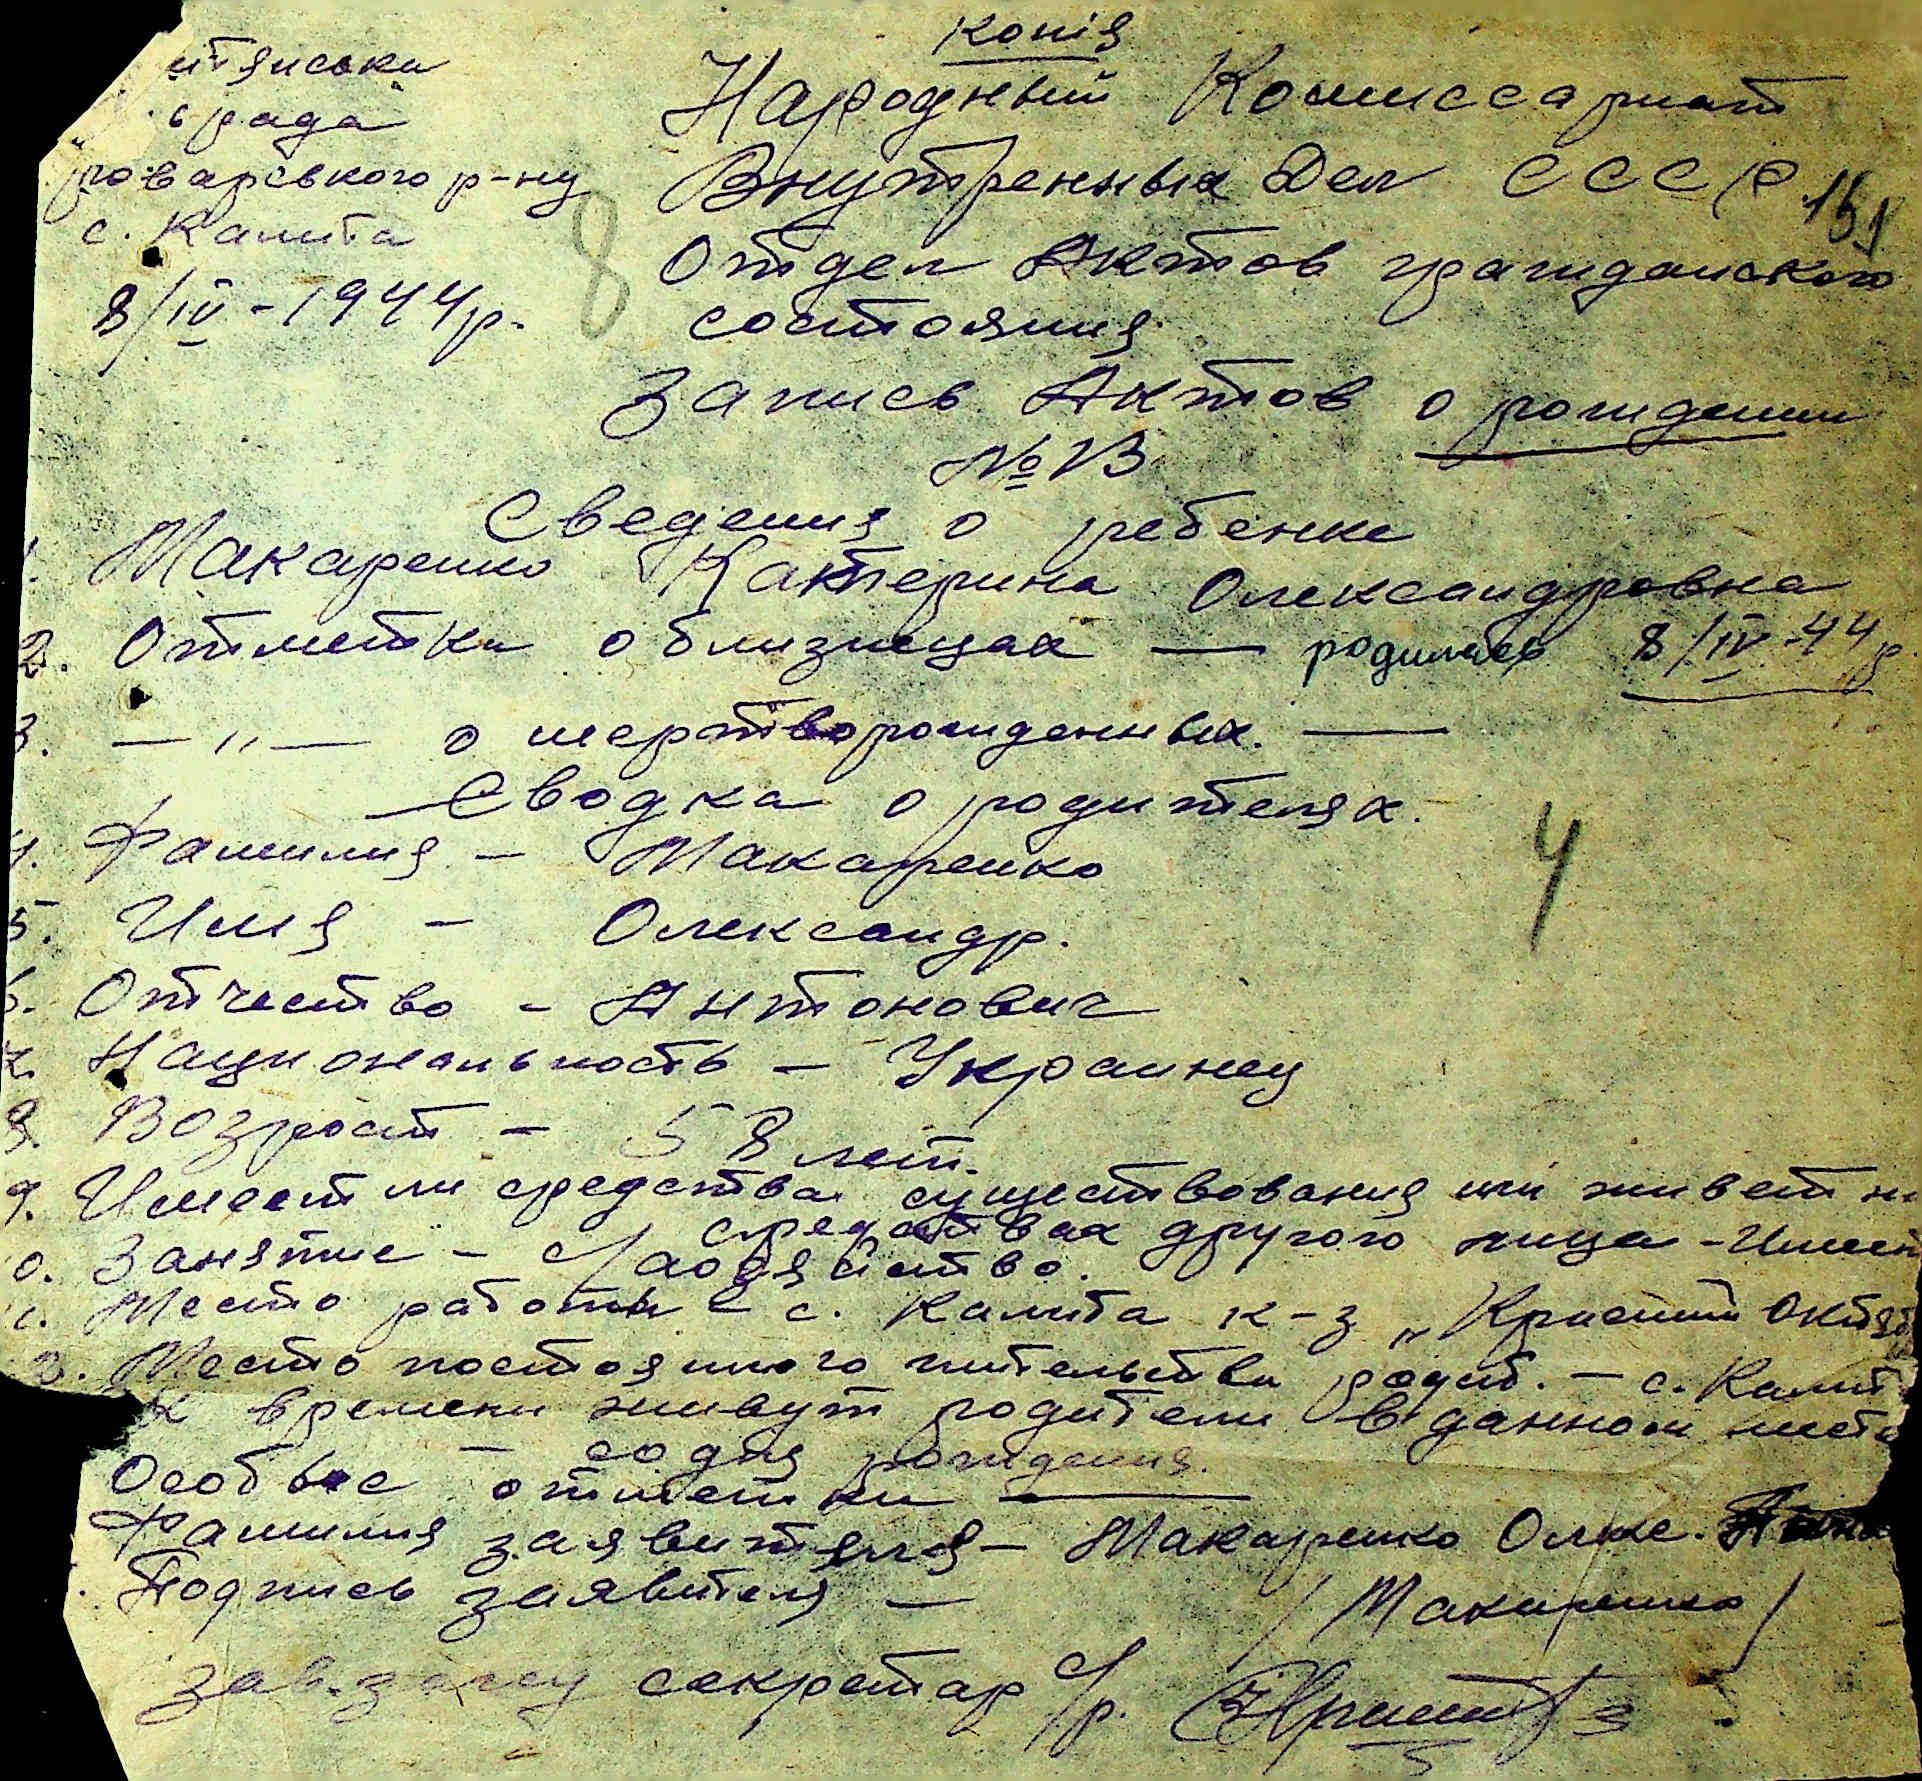 Копія
итянська
ь рада
роварсвкого р-ну
с. Калита
8/IV - 1944 р.
8
Народный Комиссариат
Внутренных Дел СССР
151
Отдел Актов гражданского
состояния
Запись Актов о рождении
№ 13
Сведения о ребенке
1. Макаренко Катерина Олександровна
2. Отметки о близнецах — родилась 8/IV-44 р.
3. —"— о мертворожденных. —
Сводка о родителях.
4. Фамилия - Макаренко
4
5. Имя - Олександр.
6. Отчество - Антонович
7. Национальность - Украинец
8. Возрост - 58 лет.
9. Имеет ли средства существования или живет н
средствах другого лица - Имеет
10. Занятие - с/хозяйство.
11. Место работы - с. Калита к-з „Красний Октяб
13. Место постоянного жительства родит. - с. Калит
к времени живут родители в данном месте
- со дня рождения.
Особые отметки —
Фамилия заявителя - Макаренко Олекс.
Подпись заявителя - /Макаренко/
Зав. загсу секретар с/р.